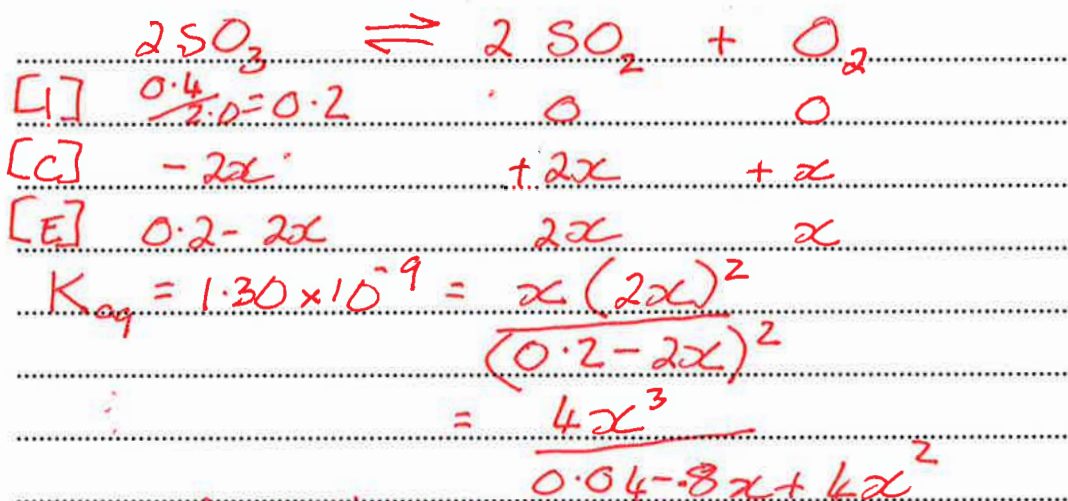 2SO₃ ⇌ 2 SO₂ + O₂
[I] 0.4/2.0 = 0.2 0 0
[C] - 2x + 2x + x
[E] 0.2 - 2x 2x x
Keq = 1.30 × 10⁻⁹ = x (2x)² / (0.2 - 2x)²
= 4x³ / 0.04 - .8x + 4x²